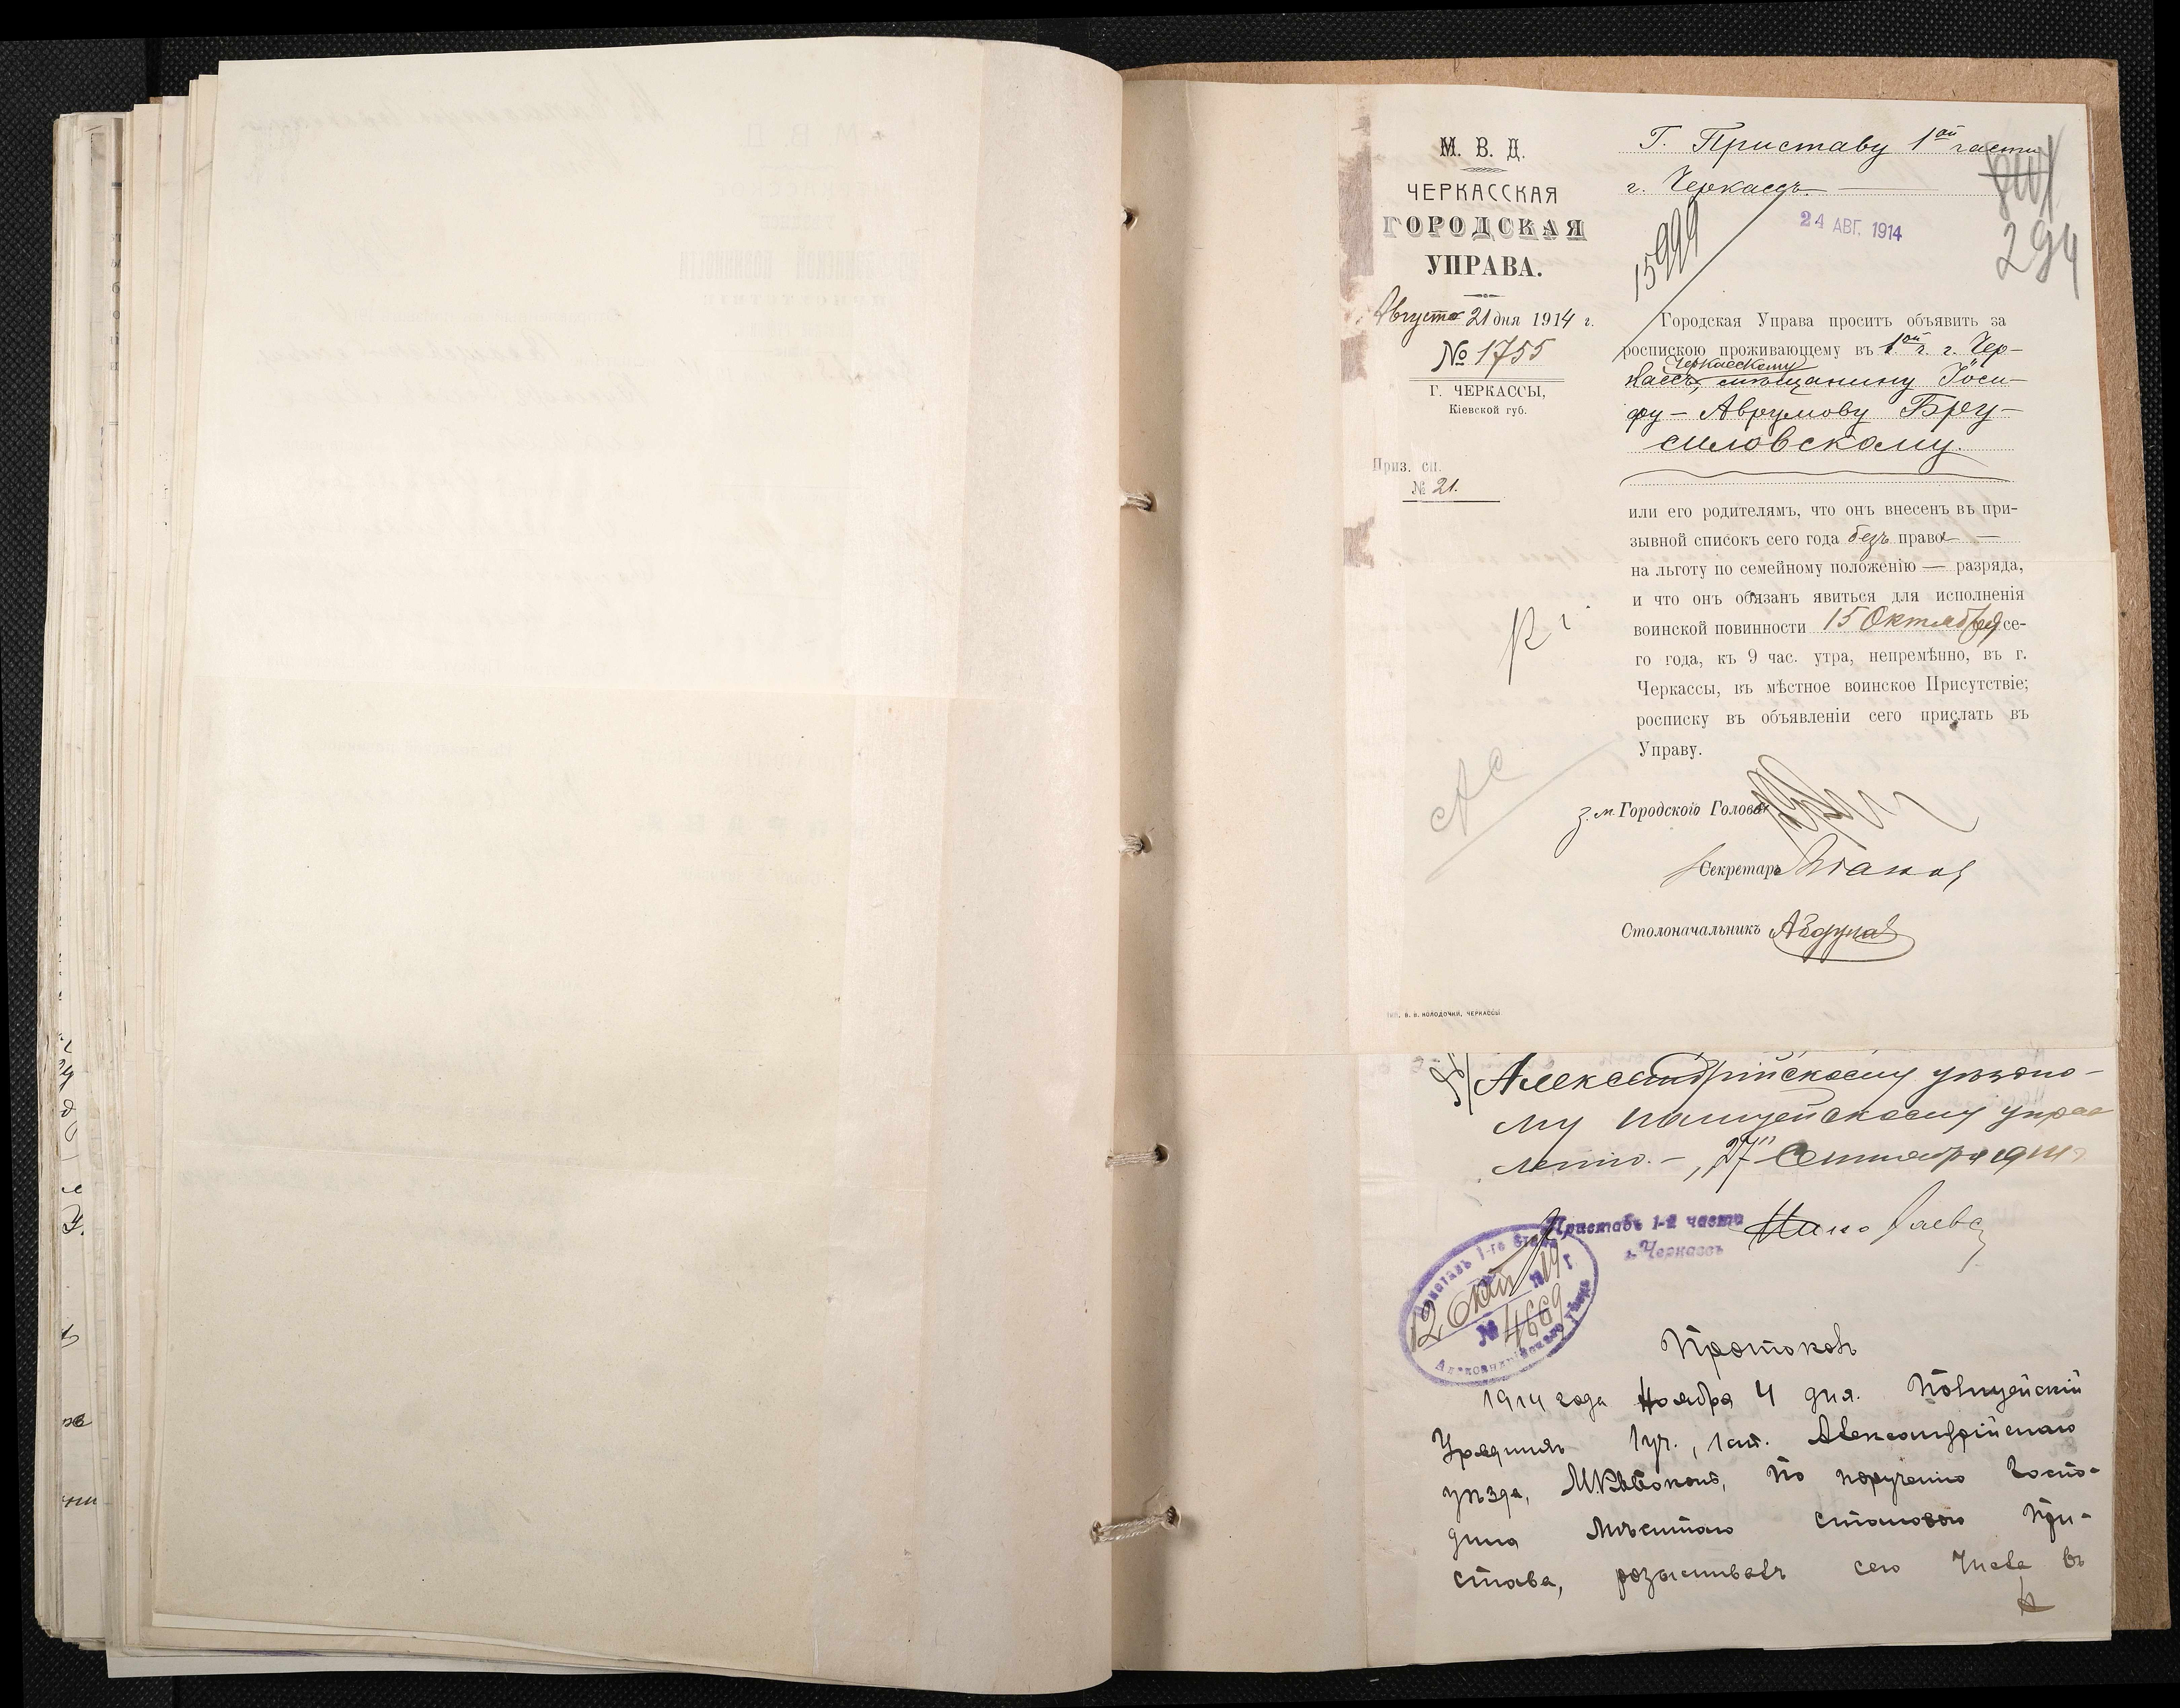 М. В. Д.
ЧЕРКАССКАЯ
ГОРОДСКАЯ
УПРАВА.
Августа 21 дня 1914 г.
№ 1755
Г. ЧЕРКАССЫ,
Кіевской губ.
Приз. сп.
№ 21.
Г. Приставу 1ой части
г. Черкассъ
24 АВГ. 1914
15999
294
Городская Управа проситъ объявить за
роспискою проживающему въ 1ой ч. г. Чер-
кассъ, Черкасскому мѣщанину Іоси-
фу - Аврумову Бру-
силовскому.
или его родителямъ, что онъ внесенъ въ при-
зывной списокъ сего года безъ права —
на льготу по семейному положенію — разряда,
и что онъ обязанъ явиться для исполненія
воинской повинности 15 Октября се-
го года, къ 9 час. утра, непремѣнно, въ г.
Черкассы, въ мѣстное воинское Присутствіе;
росписку въ объявленіи сего прислать въ
Управу.
з. м. Городского Головы
Секретарь
Столоначальникъ
ТИП. В. В. КОЛОДОЧКИ, ЧЕРКАССЫ
Александрійскому уѣздно-
му полицейскому управ
ленію. - „27" Сентября 1914 г
Приставъ 1-й части
г. Черкассъ
Приставъ 1-го Стана
12 Окт 1914 г
№ 4669
Александрійскаго Уѣзда
Протоколъ
1914 года Ноября 4 дня. Полицейскій
Урядникъ 1 уч., 1 ст. Александрійскаго
уѣзда, по порученію Госпо-
дина Мѣстнаго станового При-
става, розыскивалъ сего числа въ